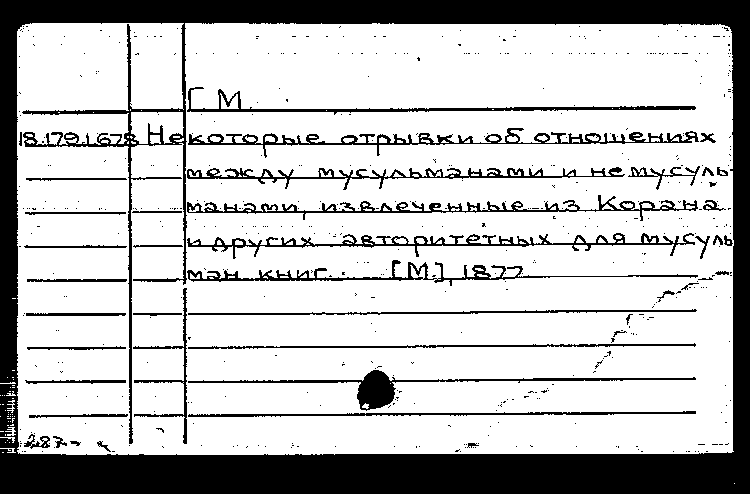 Г М
18.179.1.678 Некоторые отрывки об отношениях
между мусульманами и немусуль-
манами, извлеченные из Корана
и других авторитетных для мусуль
ман книг. [М], 1877
287-